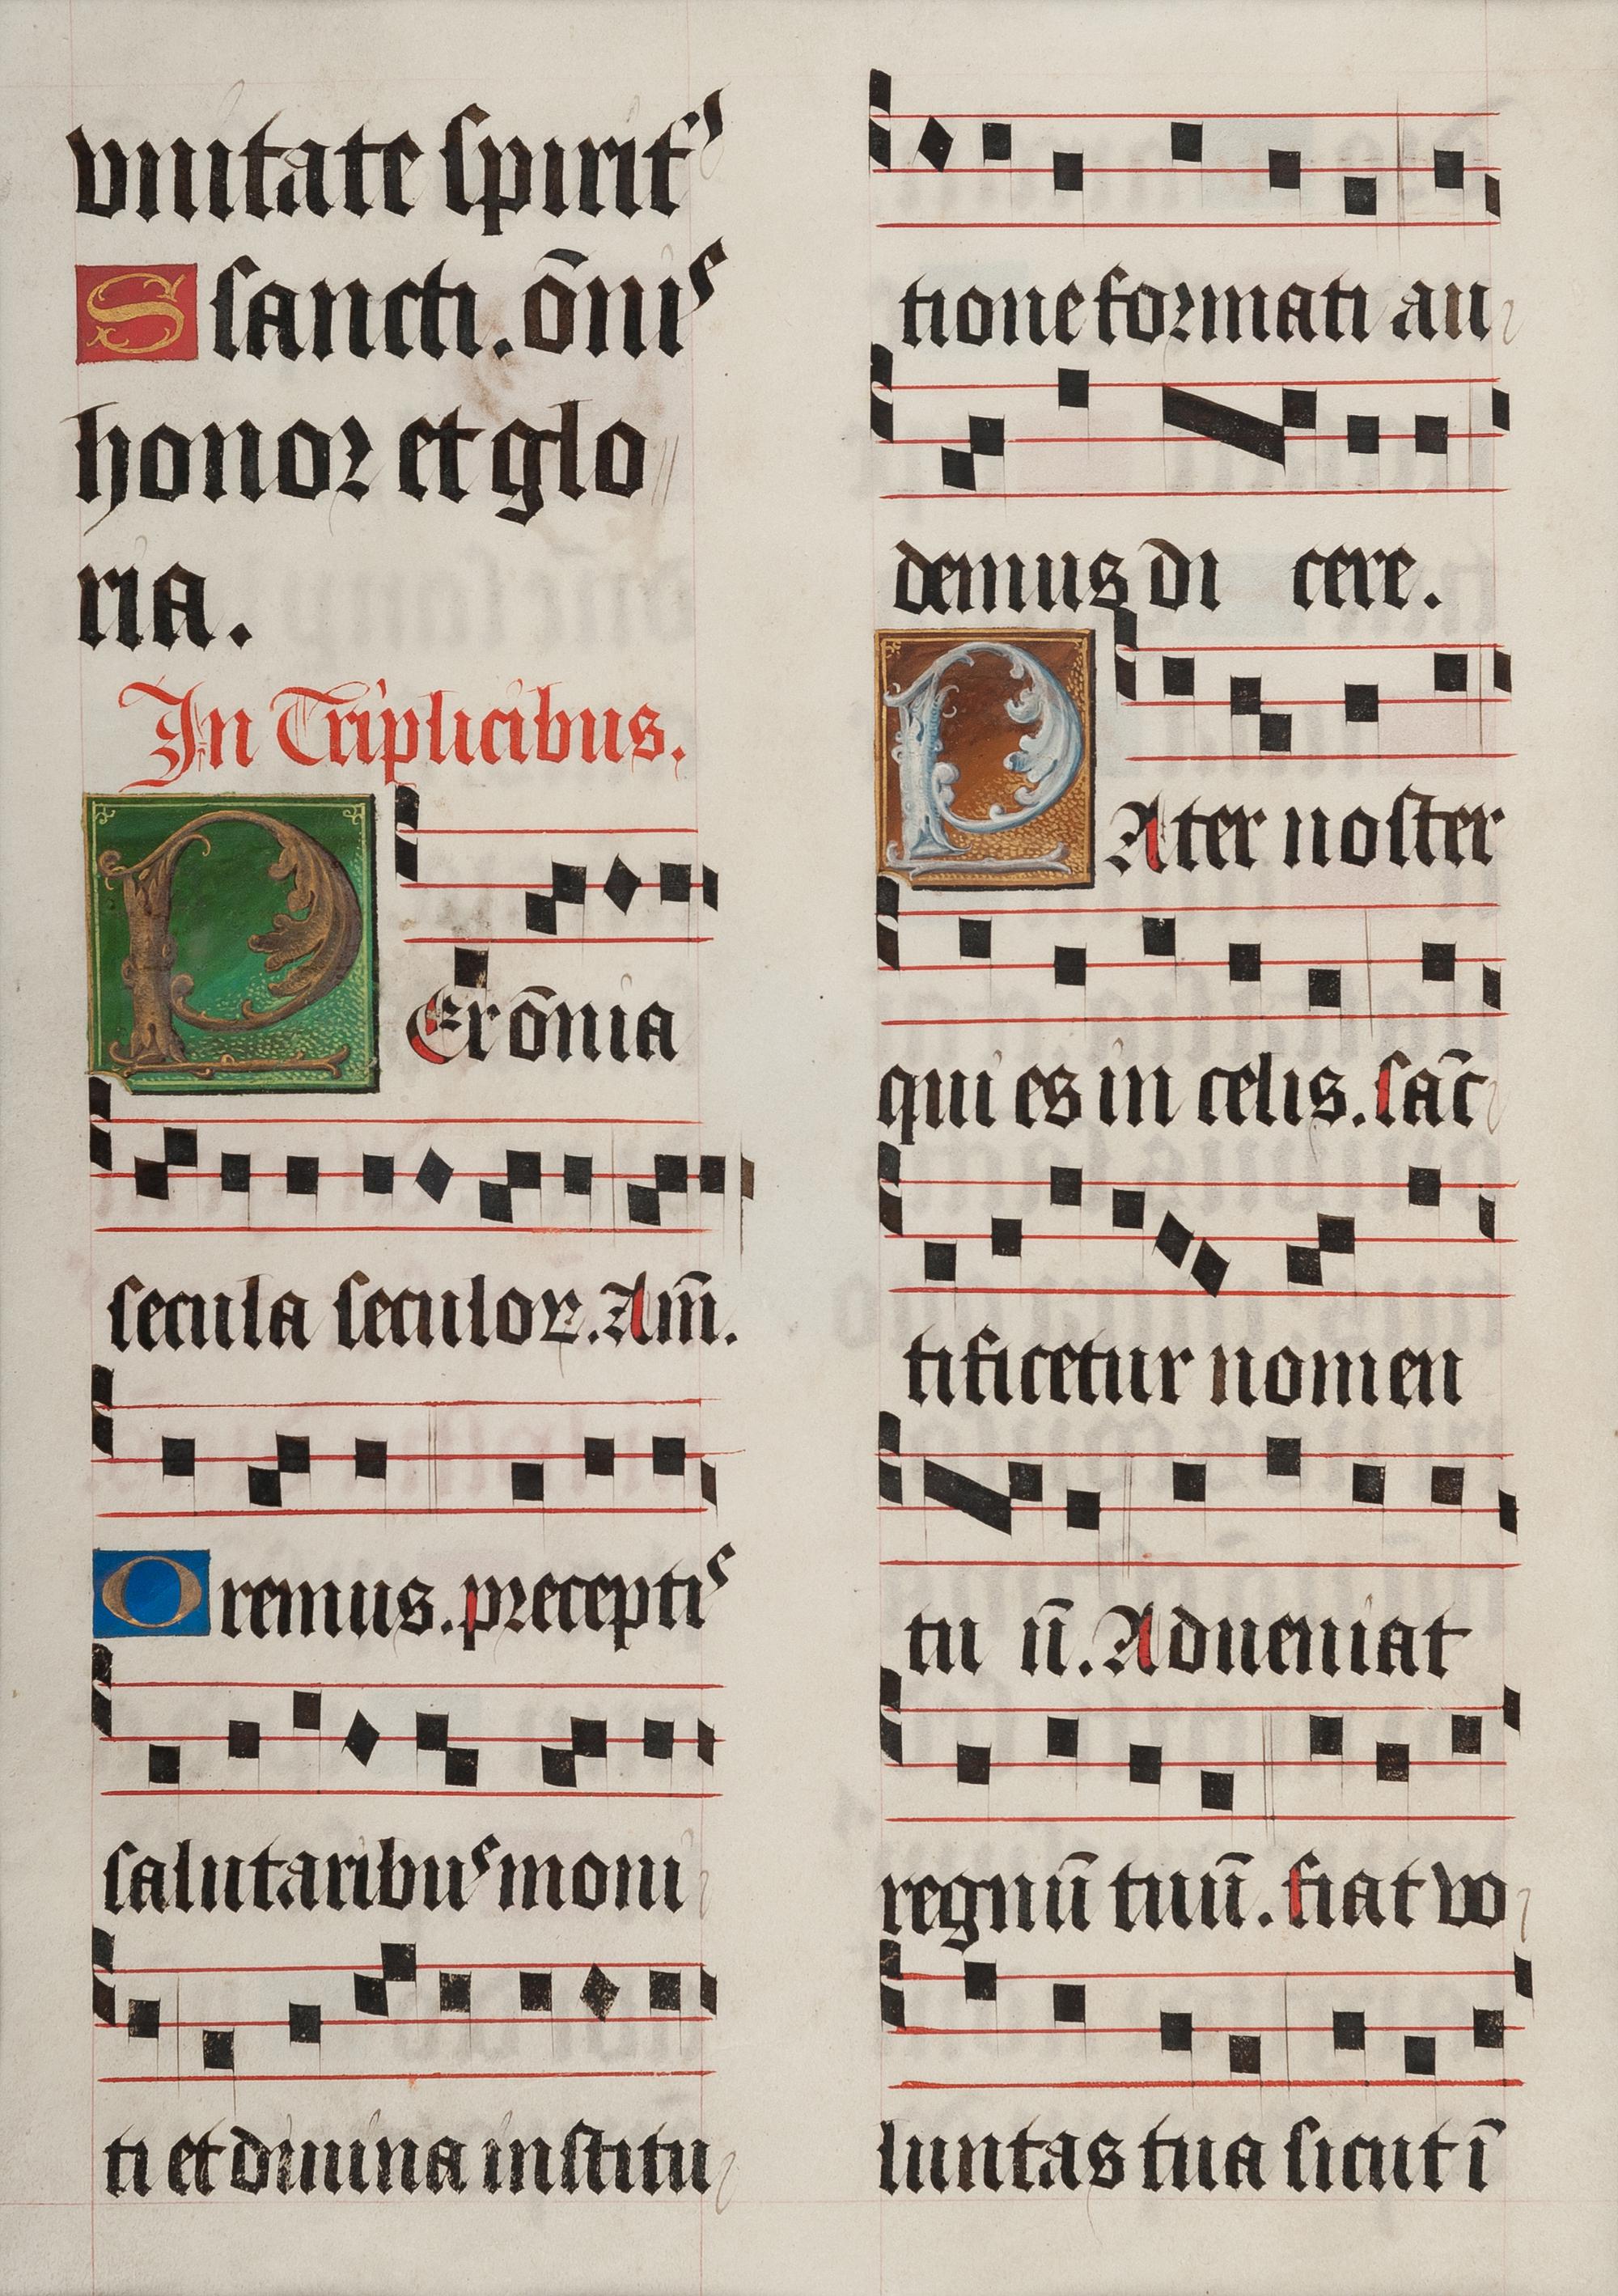 vnitate spiritꝰ
S sancti. ōnis
honor et glo
ria.
In Triplicibus.
PEr ōnia
secula seculoꝝ. Am̄.
Oremus. preceptis
salutaribus moni
ti et diuina institu
tione formati au
demus di cere.
PAter noster
qui es in celis. sāc
tificetur nomen
tu ū. Adueniat
regnū tuū. fiat vo
luntas tua sicut ī